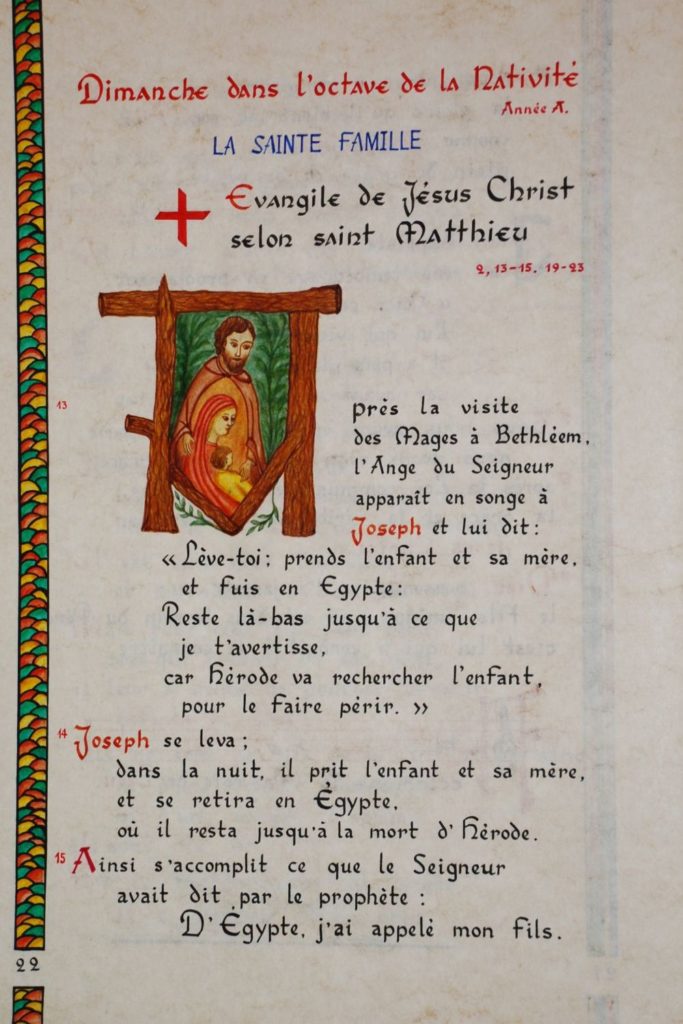 Dimanche dans l'octave de la Nativité
Année A.
LA SAINTE FAMILLE
Evangile de Jésus Christ
selon saint Matthieu
2, 13-15. 19-23
13 Après la visite
des Mages à Bethléem,
l'Ange du Seigneur
apparaît en songe à
Joseph et lui dit :
« Lève-toi ; prends l'enfant et sa mère,
et fuis en Egypte :
Reste là-bas jusqu'à ce que
je t'avertisse,
car Hérode va rechercher l'enfant,
pour le faire périr. »
14 Joseph se leva ;
dans la nuit, il prit l'enfant et sa mère,
et se retira en Égypte,
où il resta jusqu'à la mort d'Hérode.
15 Ainsi s'accomplit ce que le Seigneur
avait dit par le prophète :
D'Égypte, j'ai appelé mon fils.
22